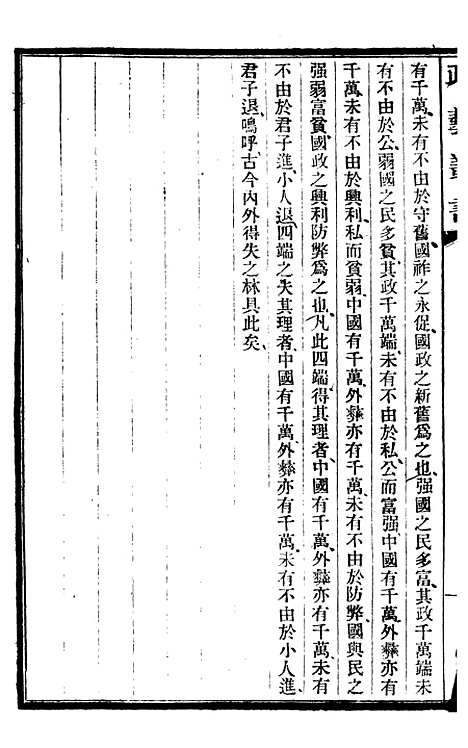 有千萬、未有不由於守舊、國祚之永促、國政之新舊爲之也、强國之民多富、其政千萬端、未
有不由於公、弱國之民多貧、其政千萬端、未有不由於私、公而富强、中國有千萬、外彝亦有
千萬、未有不由於興利、私而貧弱、中國有千萬、外彝亦有千萬、未有不由於防弊、國與民之
强弱富貧、國政之興利防弊爲之也、凡此四端得其理者、中國有千萬、外彝亦有千萬、未有
不由於君子進、小人退、四端之失其理者、中國有千萬、外彝亦有千萬、未有不由於小人進、
君子退、嗚呼古今內外得失之林具此矣、